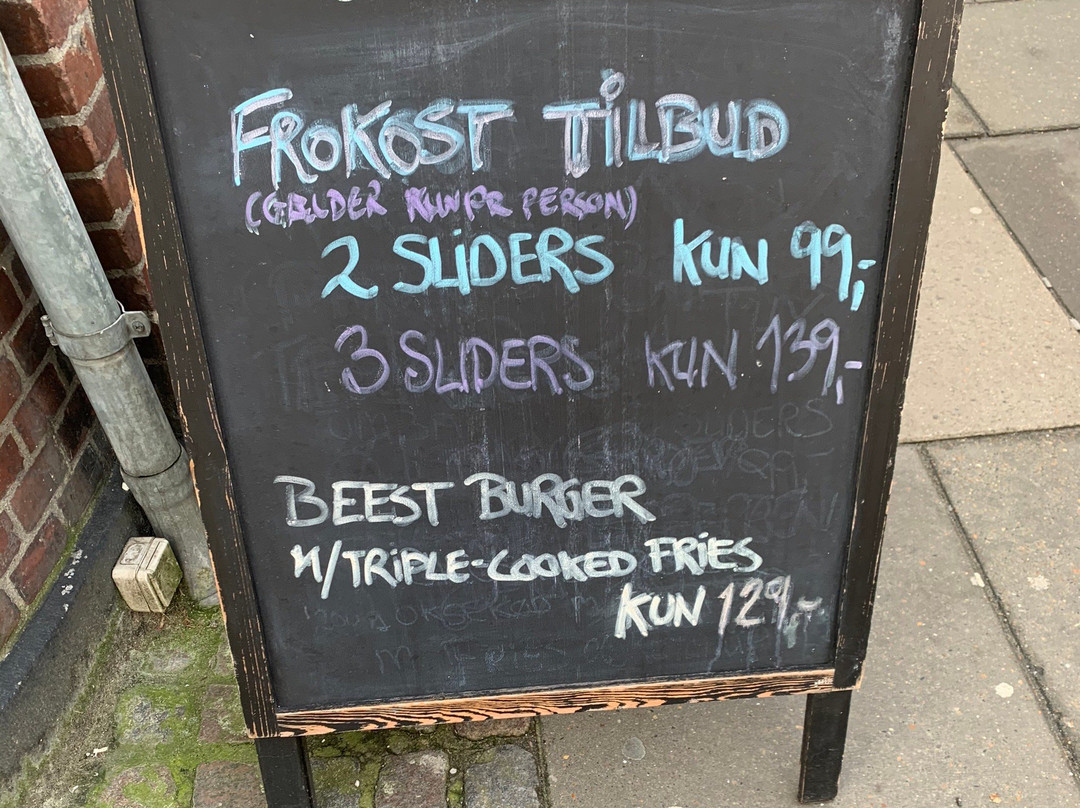 FROKOST TILBUD
(GÆLDER KUN PR PERSON)
2 SLIDERS KUN 99,-
3 SLIDERS KUN 139,-
BEEST BURGER
M/TRIPLE-COOKED FRIES
KUN 129,-